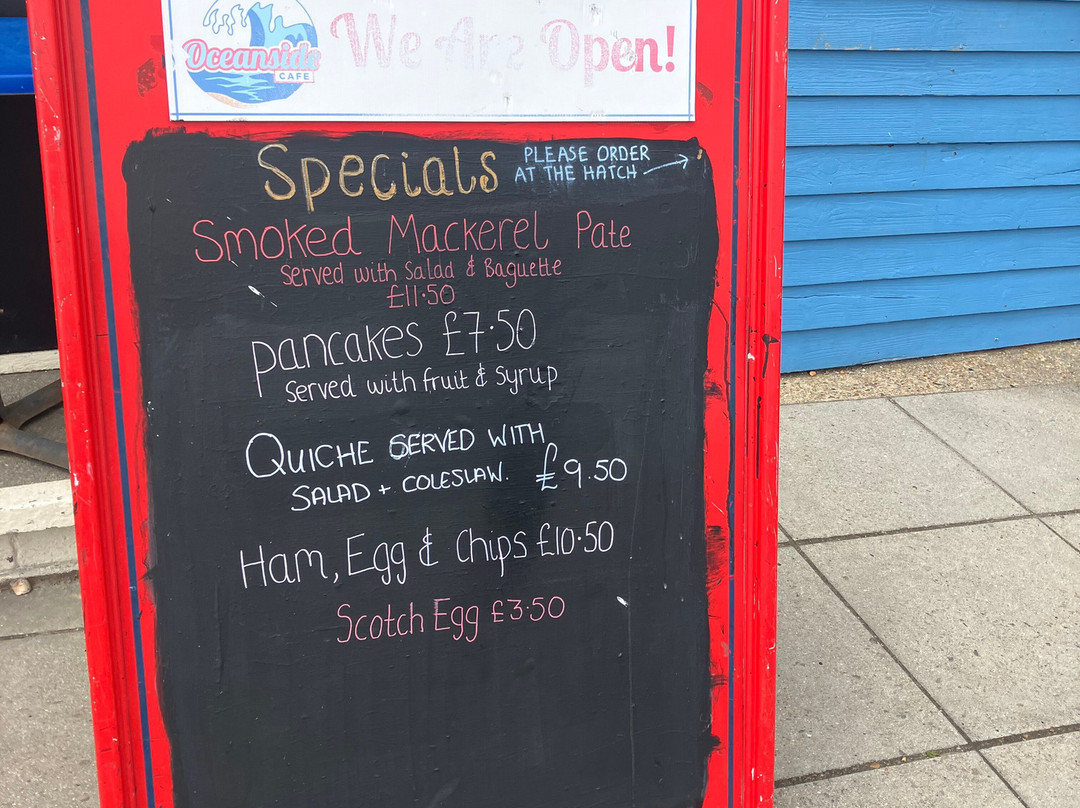 Oceanside
CAFE
We Are Open!
Specials
PLEASE ORDER
AT THE HATCH
Smoked Mackerel Pate
Served with Salad & Baguette
£11.50
pancakes £7.50
Served with fruit & Syrup
QUICHE SERVED WITH
SALAD + COLESLAW. £9.50
Ham, Egg & Chips £10.50
Scotch Egg £3.50